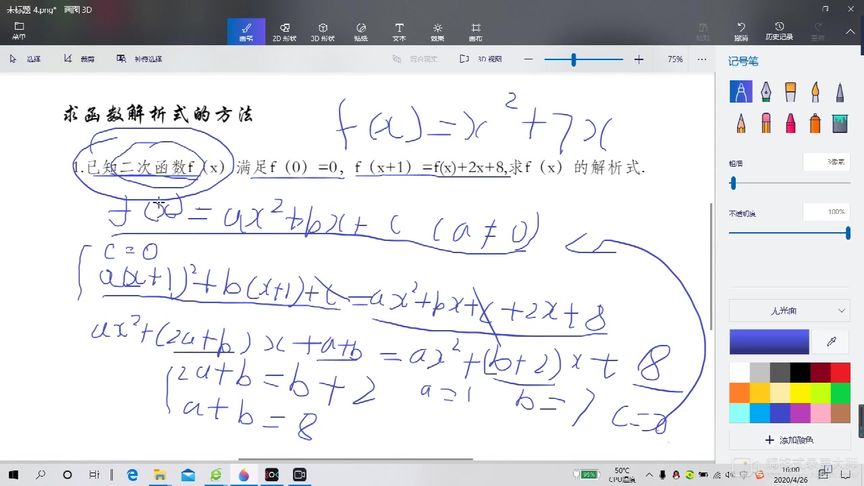 未标题 4.png* - 画图 3D
菜单
画笔
2D 形状
3D 形状
贴纸
文本
效果
画布
撤消
历史记录
选择
裁剪
3D 视图
75%
记号笔
求函数解析式的方法
f(x)=x²+7x
1.已知二次函数f（x）满足f（0）=0，f（x+1）=f(x)+2x+8,求f（x）的解析式.
f(x)=ax²+bx+c (a≠0)
c=0
a(x+1)²+b(x+1)+c=ax²+bx+c+2x+8
ax²+(2a+b)x+a+b=ax²+(b+2)x+8
2a+b=b+2
a=1 b=7 c=0
a+b=8
粗细
3像素
不透明度
100%
添加颜色
95%
50℃
CPU温度
16:00
2020/4/26